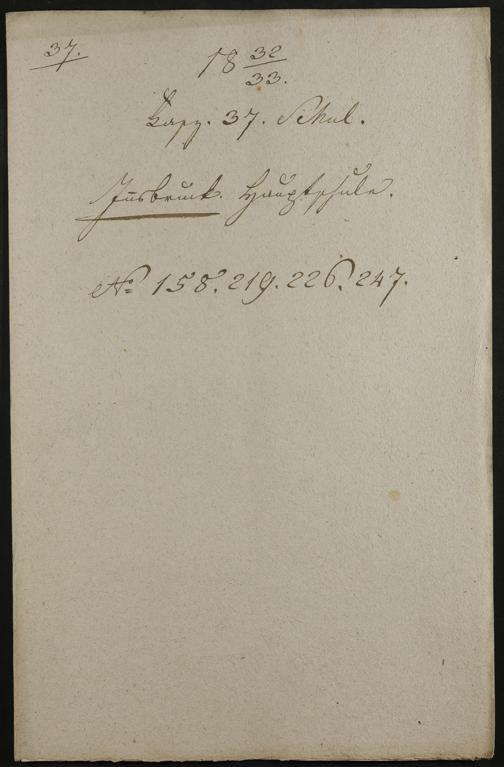 37.
18 32/33.
Fasz. 37. Schul.
Innsbruck. Hauptschule.
No 158. 219. 226. 247.